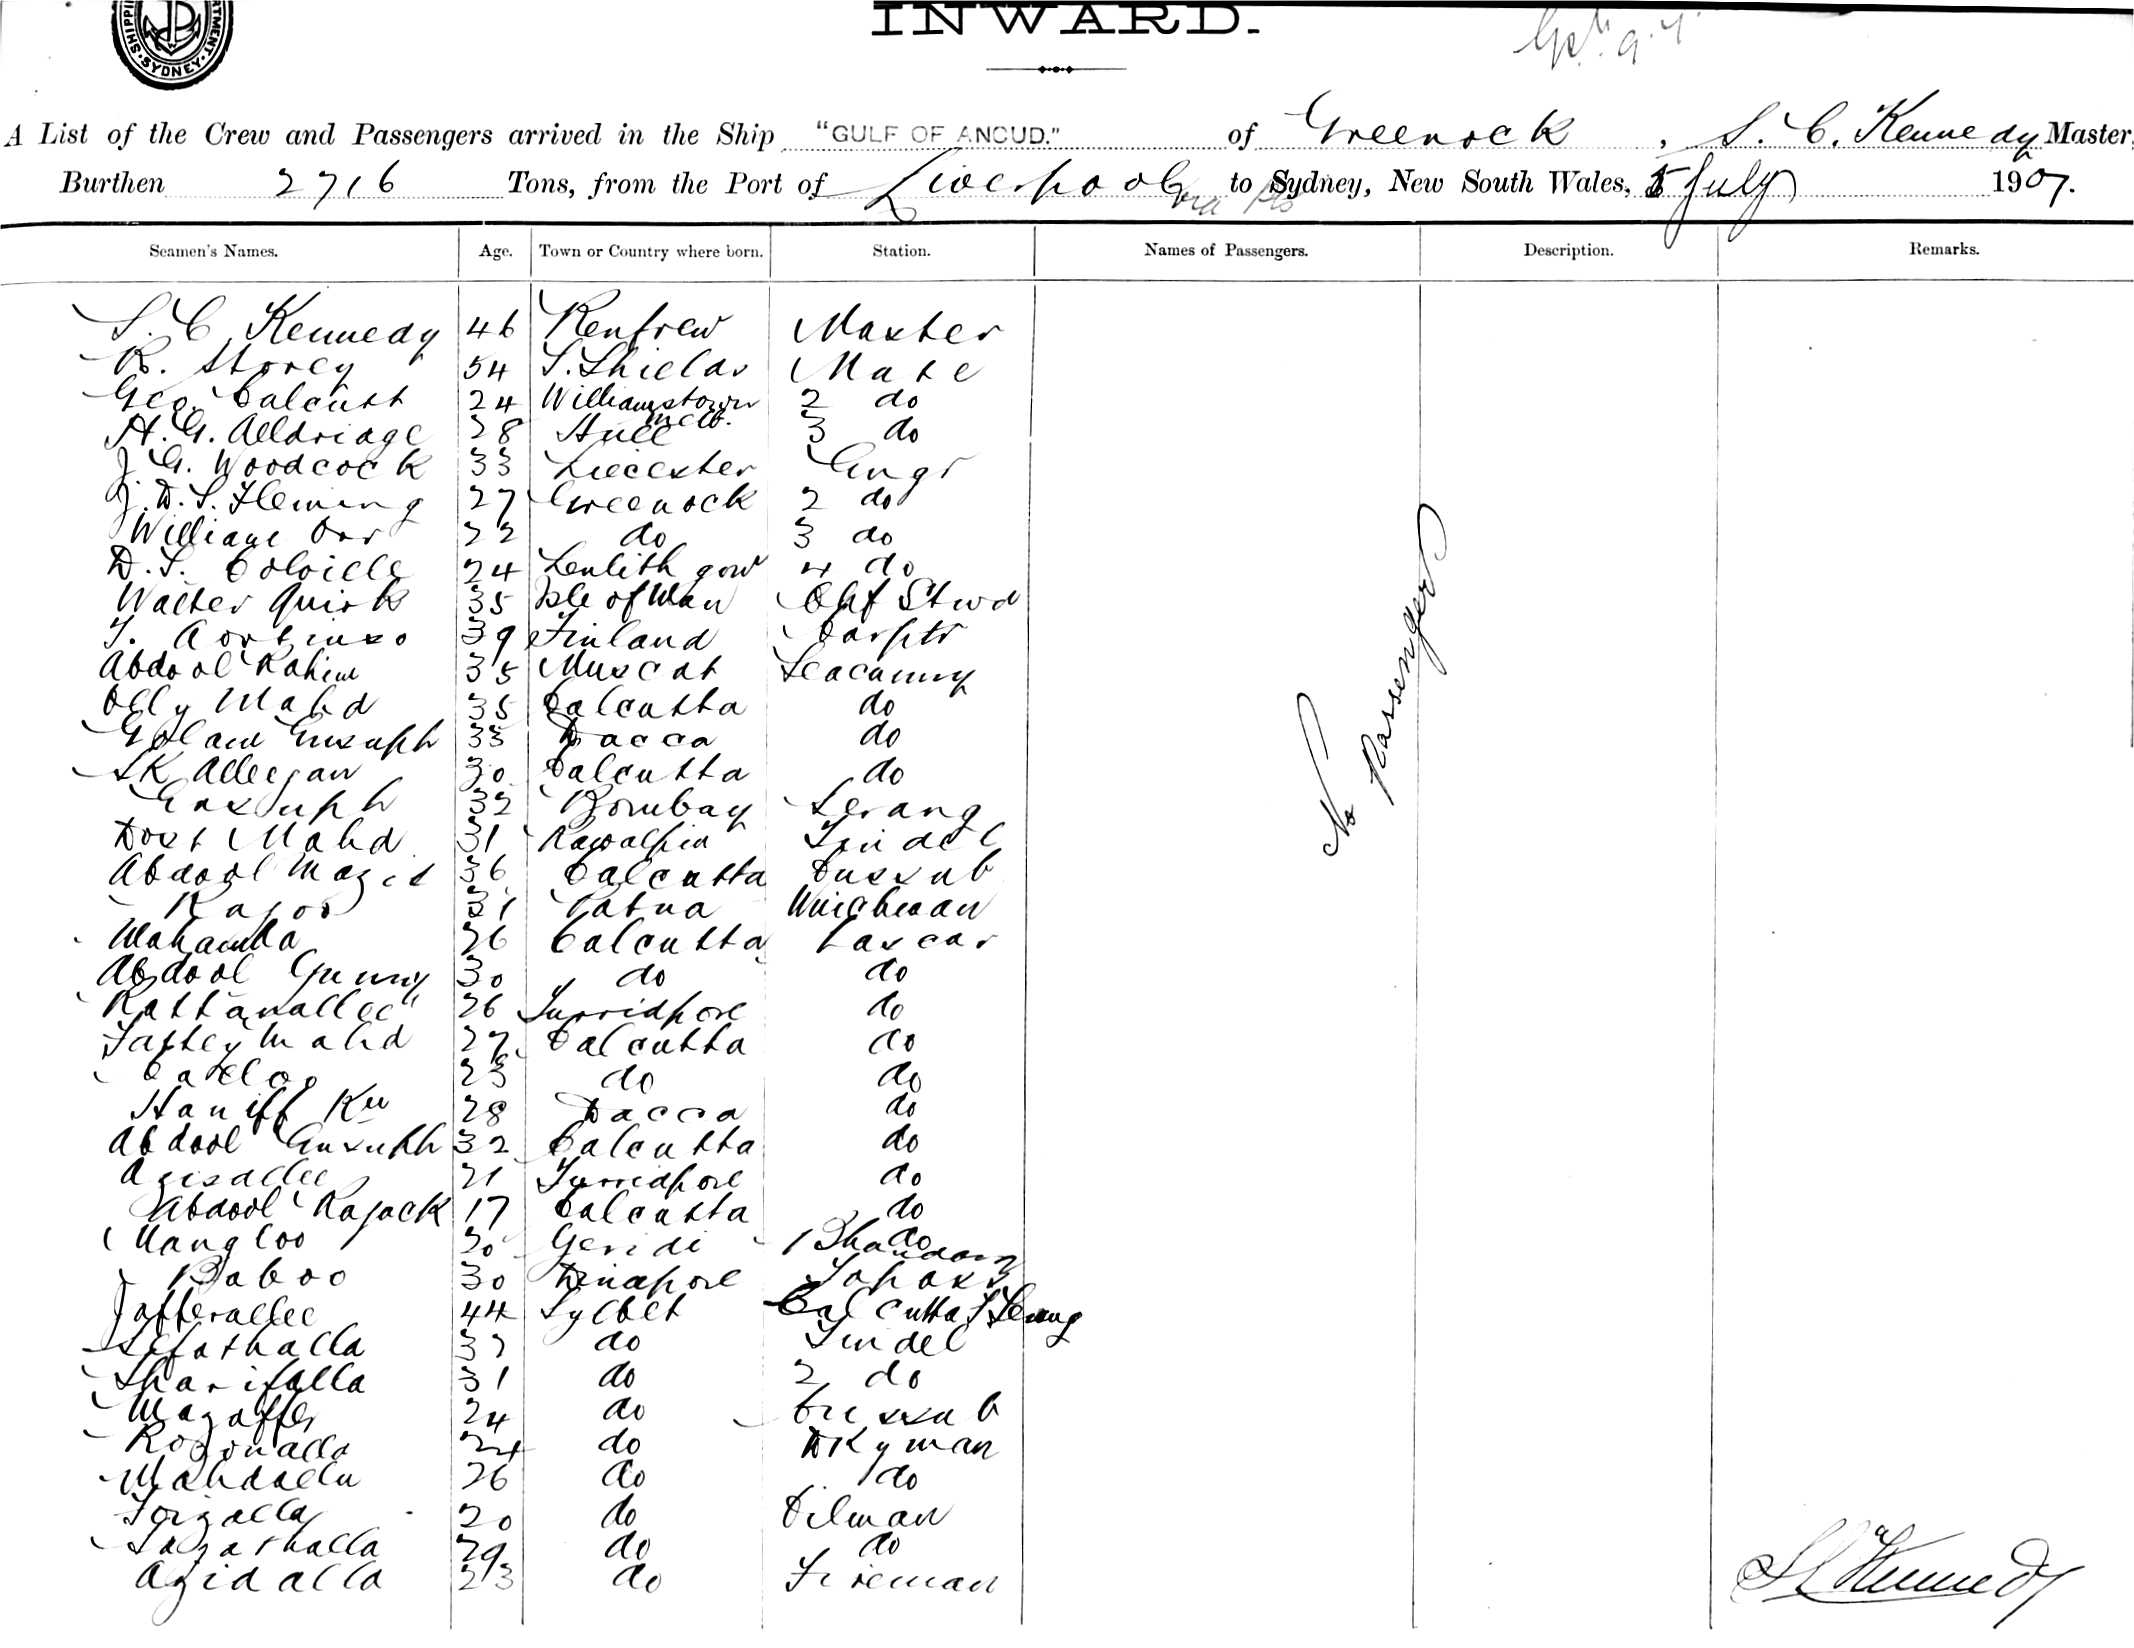 SHIPPING DEPARTMENT. SYDNEY.
INWARD.
A List of the Crew and Passengers arrived in the Ship "GULF OF ANCUD." of Greenock, S. C. Kennedy Master,
Burthen 2716 Tons, from the Port of Liverpool via to Sydney, New South Wales, 5 July 1907.
Seamen's Names. Age. Town or Country where born. Station. Names of Passengers. Description. Remarks.
S. C. Kennedy 46 Renfrew Master
R. Storey 54 S. Shields Mate
Geo. Calcutt 24 Williamstown Melb. 2 do
H. G. Alldridge 28 Hull 3 do
J. G. Woodcock 33 Liecester Engr
J. D. S. Fleming 27 Greenock 2 do
William Orr 22 do 3 do
D. S. Colville 24 Lenlithgow 4 do
Walter Quirk 35 Isle of Man Chf Stwd
39 Finland Carptr
Abdool Rahim 35 Muscat Seacunny
Olly Mahd 35 Calcutta do
Golam Eusuph 33 Dacca do
SK Alleejan 30 Calcutta do
Eusuph 32 Bombay Serang
Dost Mahd 31 Rawalpin Tindel
Abdool Magid 36 Calcutta Cussub
Rajoo 31 Patna Winchman
26 Calcutta Lascar
Abdool Gunny 30 do do
Rattanallee 26 Furridpore do
Faftey Mahd 27 Calcutta do
23 do do
Haniff Kn 28 Dacca do
Abdool Eusuph 32 Calcutta do
Azisallee 21 Furridpore do
Abdool Rajack 17 Calcutta do
Mangloo 30 Geridi 1 Bhandary do
Baboo 30 Dinapore Topass
Jafferallee 44 Sylhet Calcutta S Serang
Sefathalla 37 do Tindel
Sharifalla 31 do 2 do
Mazaffer 24 do Cussab
Rozonalla 24 do DKyman
Mahdalla 26 do do
Foizalla 20 do Oilman
29 do do
Azidalla 23 do Fireman
No Passengers
S C Kennedy